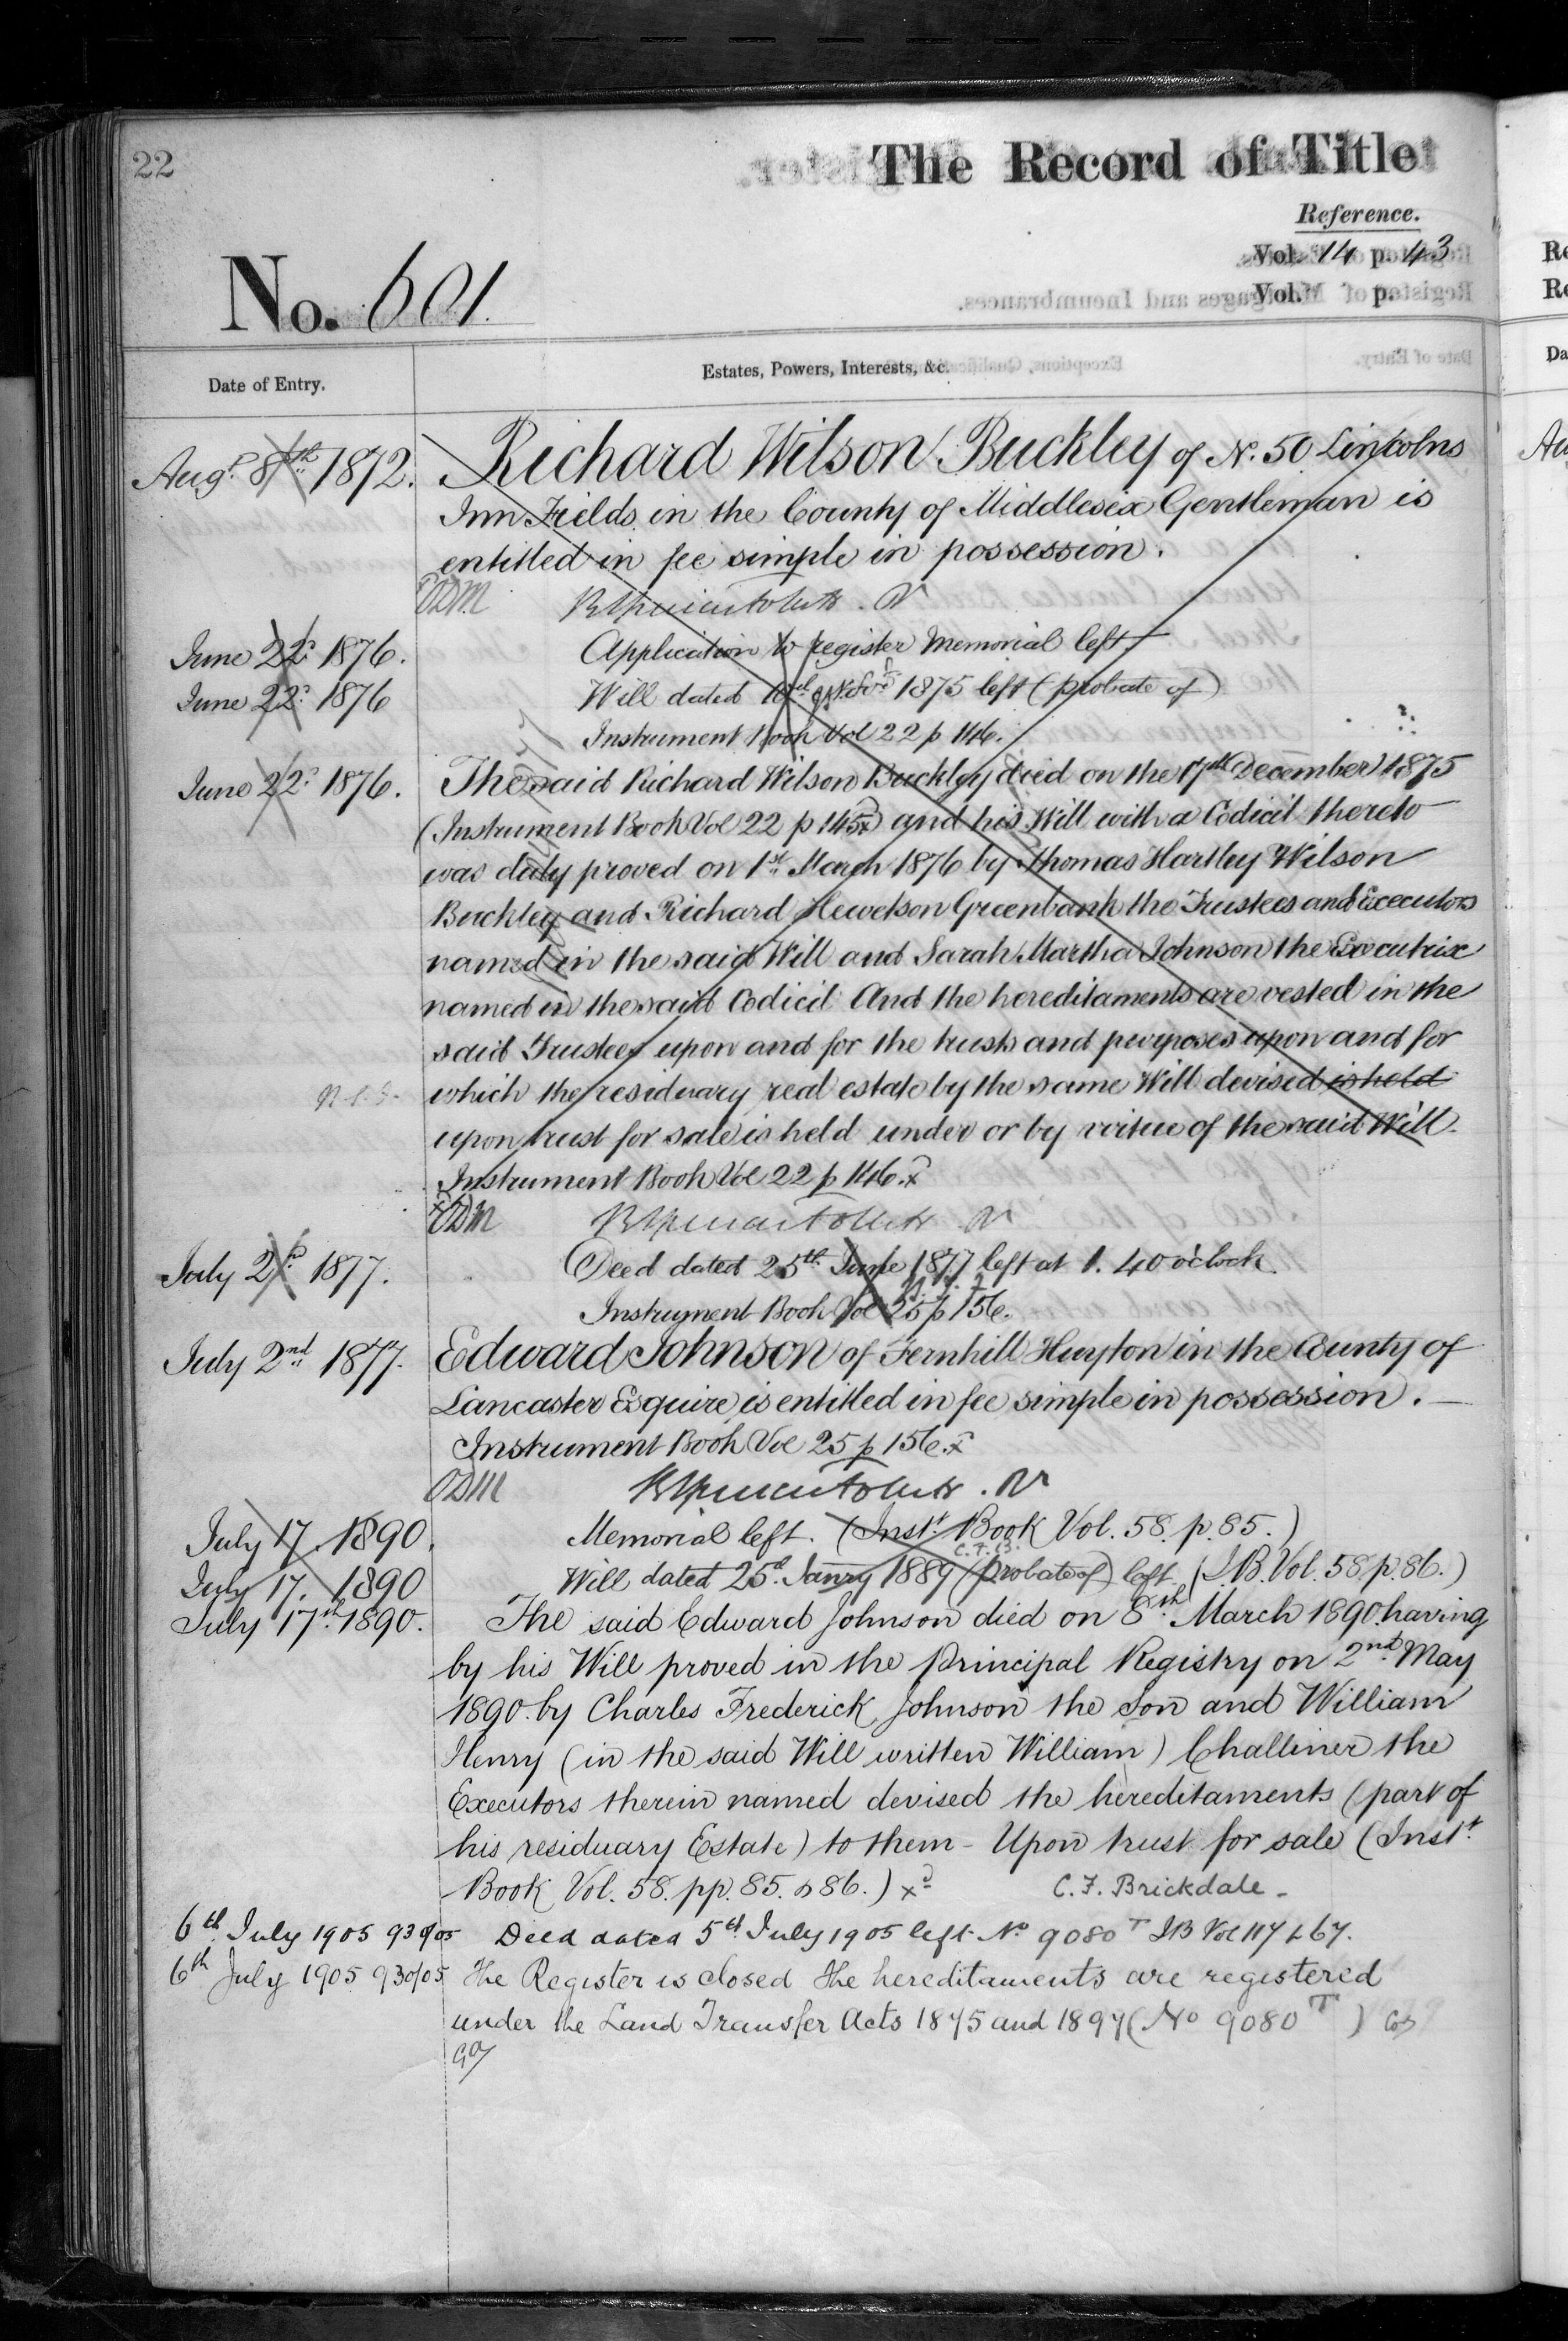 22
The Record of Title
Reference.
Vol. 14 p. 43
Vol. p.
No. 601.
Date of Entry.
Estates, Powers, Interests, &c.
Augt. 8th 1872.
Richard Wilson Buckley of No. 50 Lincolns
Inn Fields in the County of Middlesex Gentleman is
entitled in fee simple in possession.
June 22d 1876. Application to register Memorial left.
June 22d 1876 Will dated 1875 left (probate of)
Instrument Book Vol 22 p 146.
June 22d 1876. The said Richard Wilson Buckley died on the 17th December 1875
(Instrument Book Vol 22 p 145 xd) and his Will with a Codicil thereto
was duly proved on 1st March 1876 by Thomas Hartley Wilson
Buckley and Richard Hewetson Greenbank the Trustees and Executors
named in the said Will and Sarah Martha Johnson the Executrix
named in the said Codicil And the hereditaments are vested in the
said Trustees upon and for the trusts and purposes upon and for
which the residuary real estate by the same Will devised is held
upon trust for sale is held under or by virtue of the said Will.
Instrument Book Vol 22 p 146. xd
July 2d 1877. Deed dated 25th June 1877 left at 1. 40 o'clock.
Instrument Book Vol 25 p 156.
July 2nd 1877. Edward Johnson of Fernhill Huyton in the County of
Lancaster Esquire is entitled in fee simple in possession. —
Instrument Book Vol 25 p 156. xd
July 17. 1890. Memorial left. (Inst. Book Vol. 58. p. 85.)
C.F.B.
July 17. 1890 Will dated 25th Janry 1889 (probate of) left (I.B. Vol. 58. p. 86.)
July 17th 1890. The said Edward Johnson died on 8th March 1890 having
by his Will proved in the Principal Registry on 2nd May
1890. by Charles Frederick Johnson the Son and William
Henry (in the said Will written William) Challiner the
Executors therein named devised the hereditaments (part of
his residuary Estate) to them - Upon trust for sale (Instt.
Book Vol. 58. pp. 85. & 86.) xd C. F. Brickdale -
6th July 1905 Deed dated 5th July 1905 left No 9080 T IB Vol 117 p 67.
6th July 1905 The Register is closed the hereditaments are registered
under the Land Transfer Acts 1875 and 1897 (No 9080 T)